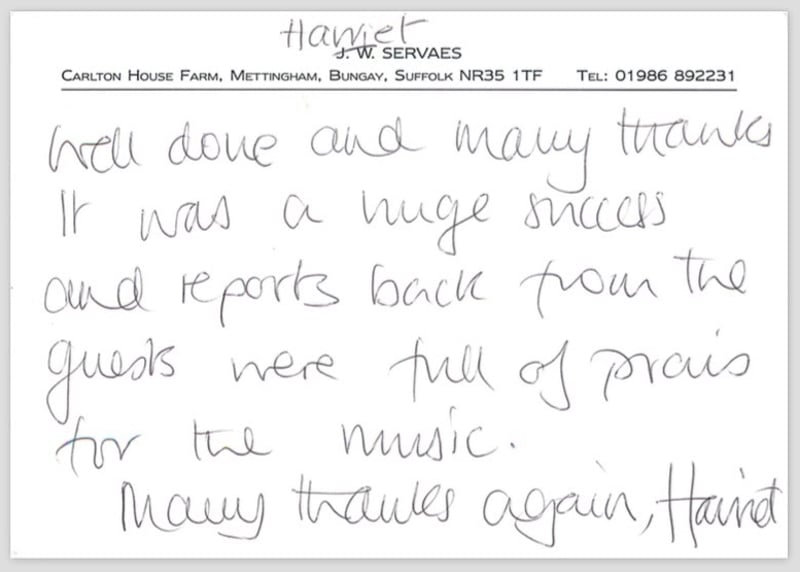 Harriet
J. W. SERVAES
CARLTON HOUSE FARM, METTINGHAM, BUNGAY, SUFFOLK NR35 1TF TEL: 01986 892231
Well done and many thanks
It was a huge success
and reports back from the
guests were full of prais
for the music.
Many thanks again, Harriet